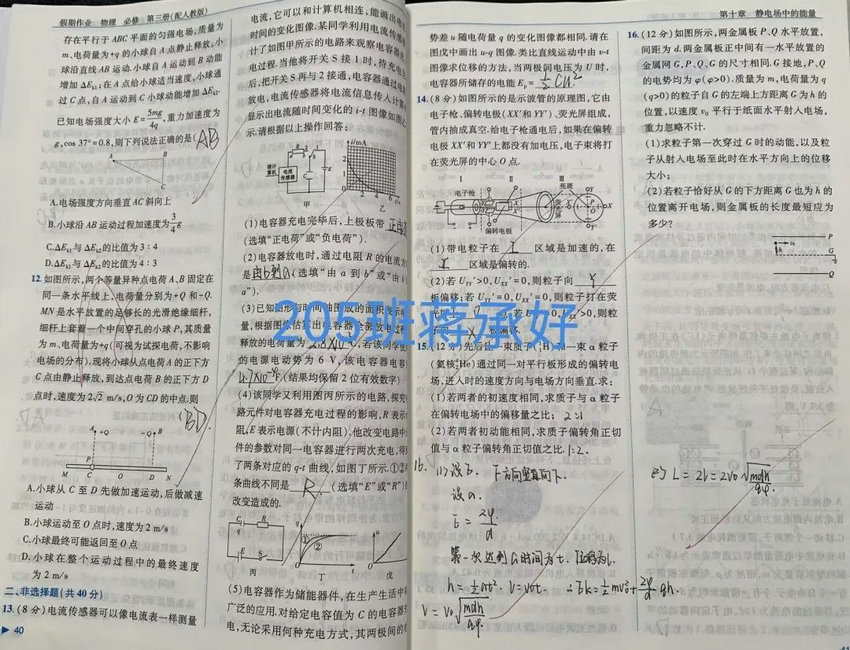 假期作业 物理 必修 第三册(配人教版)
存在平行于 ABC 平面的匀强电场,质量为
m、电荷量为+q 的小球自 A 点静止释放,小
球沿直线 AB 运动.小球自 A 运动到 B 动能
增加 ΔEk1;在 A 点给小球适当速度,小球通
过 C 点,自 A 运动到 C 小球动能增加 ΔEk2.
已知电场强度大小 E=5mg/4q,重力加速度为
g,cos 37°=0.8,则下列说法正确的是(AB)
A.电场强度方向垂直 AC 斜向上
B.小球沿 AB 运动过程加速度为3/4g
C.ΔEk1与 ΔEk2的比值为 3∶4
D.ΔEk1与 ΔEk2的比值为 4∶3
12.如图所示,两个等量异种点电荷 A、B 固定在
同一条水平线上,电荷量分别为+Q 和-Q.
MN是水平放置的足够长的光滑绝缘细杆,
细杆上套着一个中间穿孔的小球 P,其质量
为 m、电荷量为+q(可视为试探电荷,不影响
电场的分布).现将小球从点电荷 A 的正下方
C 点由静止释放,到达点电荷 B 的正下方 D
点时,速度为 2√2 m/s,O 为 CD 的中点,则
(BD)
A +Q -Q B
P
M C O D N
A.小球从 C 至 D 先做加速运动,后做减速
运动
B.小球运动至 O 点时,速度为 2 m/s
C.小球最终可能返回至 O 点
D.小球在整个运动过程中的最终速度
为 2 m/s
二、非选择题(共 40 分)
13.(8 分)电流传感器可以像电流表一样测量
40
电流,它可以和计算机相连,能画出电
时间的变化图像.某同学利用电流传
计了如图甲所示的电路来观察电容器充
电过程.当他将开关 S 接 1 时,待充电
后,把开关 S 再与 2 接通,电容器通过电
放电,电流传感器将电流信息传入计算
显示出电流随时间变化的 i-t 图像如图乙
示.请根据以上操作回答:
甲 乙
(1)电容器充电完毕后,上极板带 正电荷
(选填“正电荷”或“负电荷”).
(2)电容器放电时,通过电阻 R 的电流方
是由b到a(选填“由 a 到 b”或“由 b
a”).
(3)已知图形与时间轴围成的面积表示电
量,根据图像估算出电容器全部放电过
释放的电荷量为
的电源电动势为 6 V,该电容器电容
(结果均保留 2 位有效数字)
(4)该同学又利用图丙所示的电路,探究
路元件对电容器充电过程的影响,R表示
阻,E表示电源(不计内阻),他改变电路中
件的参数对同一电容器进行两次充电,得
了两条对应的 q-t 曲线,如图丁所示.①②
条曲线不同是 R (选填“E”或“R”)
改变造成的.
丙 丁 戊
(5)电容器作为储能器件,在生产生活中
广泛的应用.对给定电容值为 C 的电容器
电,无论采用何种充电方式,其两极间的电
205班蒋承好
第十章 静电场中的能量
势差 u 随电荷量 q 的变化图像都相同.请在
图戊中画出 u-q 图像.类比直线运动中由 v-t
图像求位移的方法,当两极间电压为 U 时,
电容器所储存的电能 Ep=½CU²
14.(8 分)如图所示的是示波管的原理图,它由
电子枪、偏转电极(XX′和YY′)、荧光屏组成,
管内抽成真空.给电子枪通电后,如果在偏转
电极 XX′和YY′上都没有加电压,电子束将打
在荧光屏的中心 O 点.
Ⅰ Ⅱ Ⅲ
电子枪 亮斑
偏转电极
(1)带电粒子在 Ⅰ 区域是加速的,在
Ⅱ 区域是偏转的.
(2)若 UYY′>0,UXX′=0,则粒子向 Y
板偏移;若 UYY′=0,UXX′=0,则粒子打在荧
>0,则粒
15.(12 分)先后让一束质子(¹₁H)和一束 α 粒子
(氦核⁴₂He)通过同一对平行板形成的偏转电
场,进入时的速度方向与电场方向垂直.求:
(1)若两者的初速度相同,求质子与 α 粒子
在偏转电场中的偏移量之比; 2:1
(2)若两者初动能相同,求质子偏转角正切
值与 α 粒子偏转角正切值之比. 1:2.
16.
E=2φ/d
h=½at²·
16.(12 分)如图所示,两金属板 P、Q 水平放置,
间距为 d.两金属板正中间有一水平放置的
金属网 G,P、Q、G 的尺寸相同.G 接地,P、Q
的电势均为 φ(φ>0).质量为 m,电荷量为 q
(q>0)的粒子自 G 的左端上方距离 G 为 h 的
位置,以速度 v₀ 平行于纸面水平射入电场,
重力忽略不计.
(1)求粒子第一次穿过 G 时的动能,以及粒
子从射入电场至此时在水平方向上的位移
大小;
(2)若粒子恰好从 G 的下方距离 G 也为 h 的
位置离开电场,则金属板的长度最短应为
多少?
P
G
Q
L=2l=2v₀√(mdh/qφ).